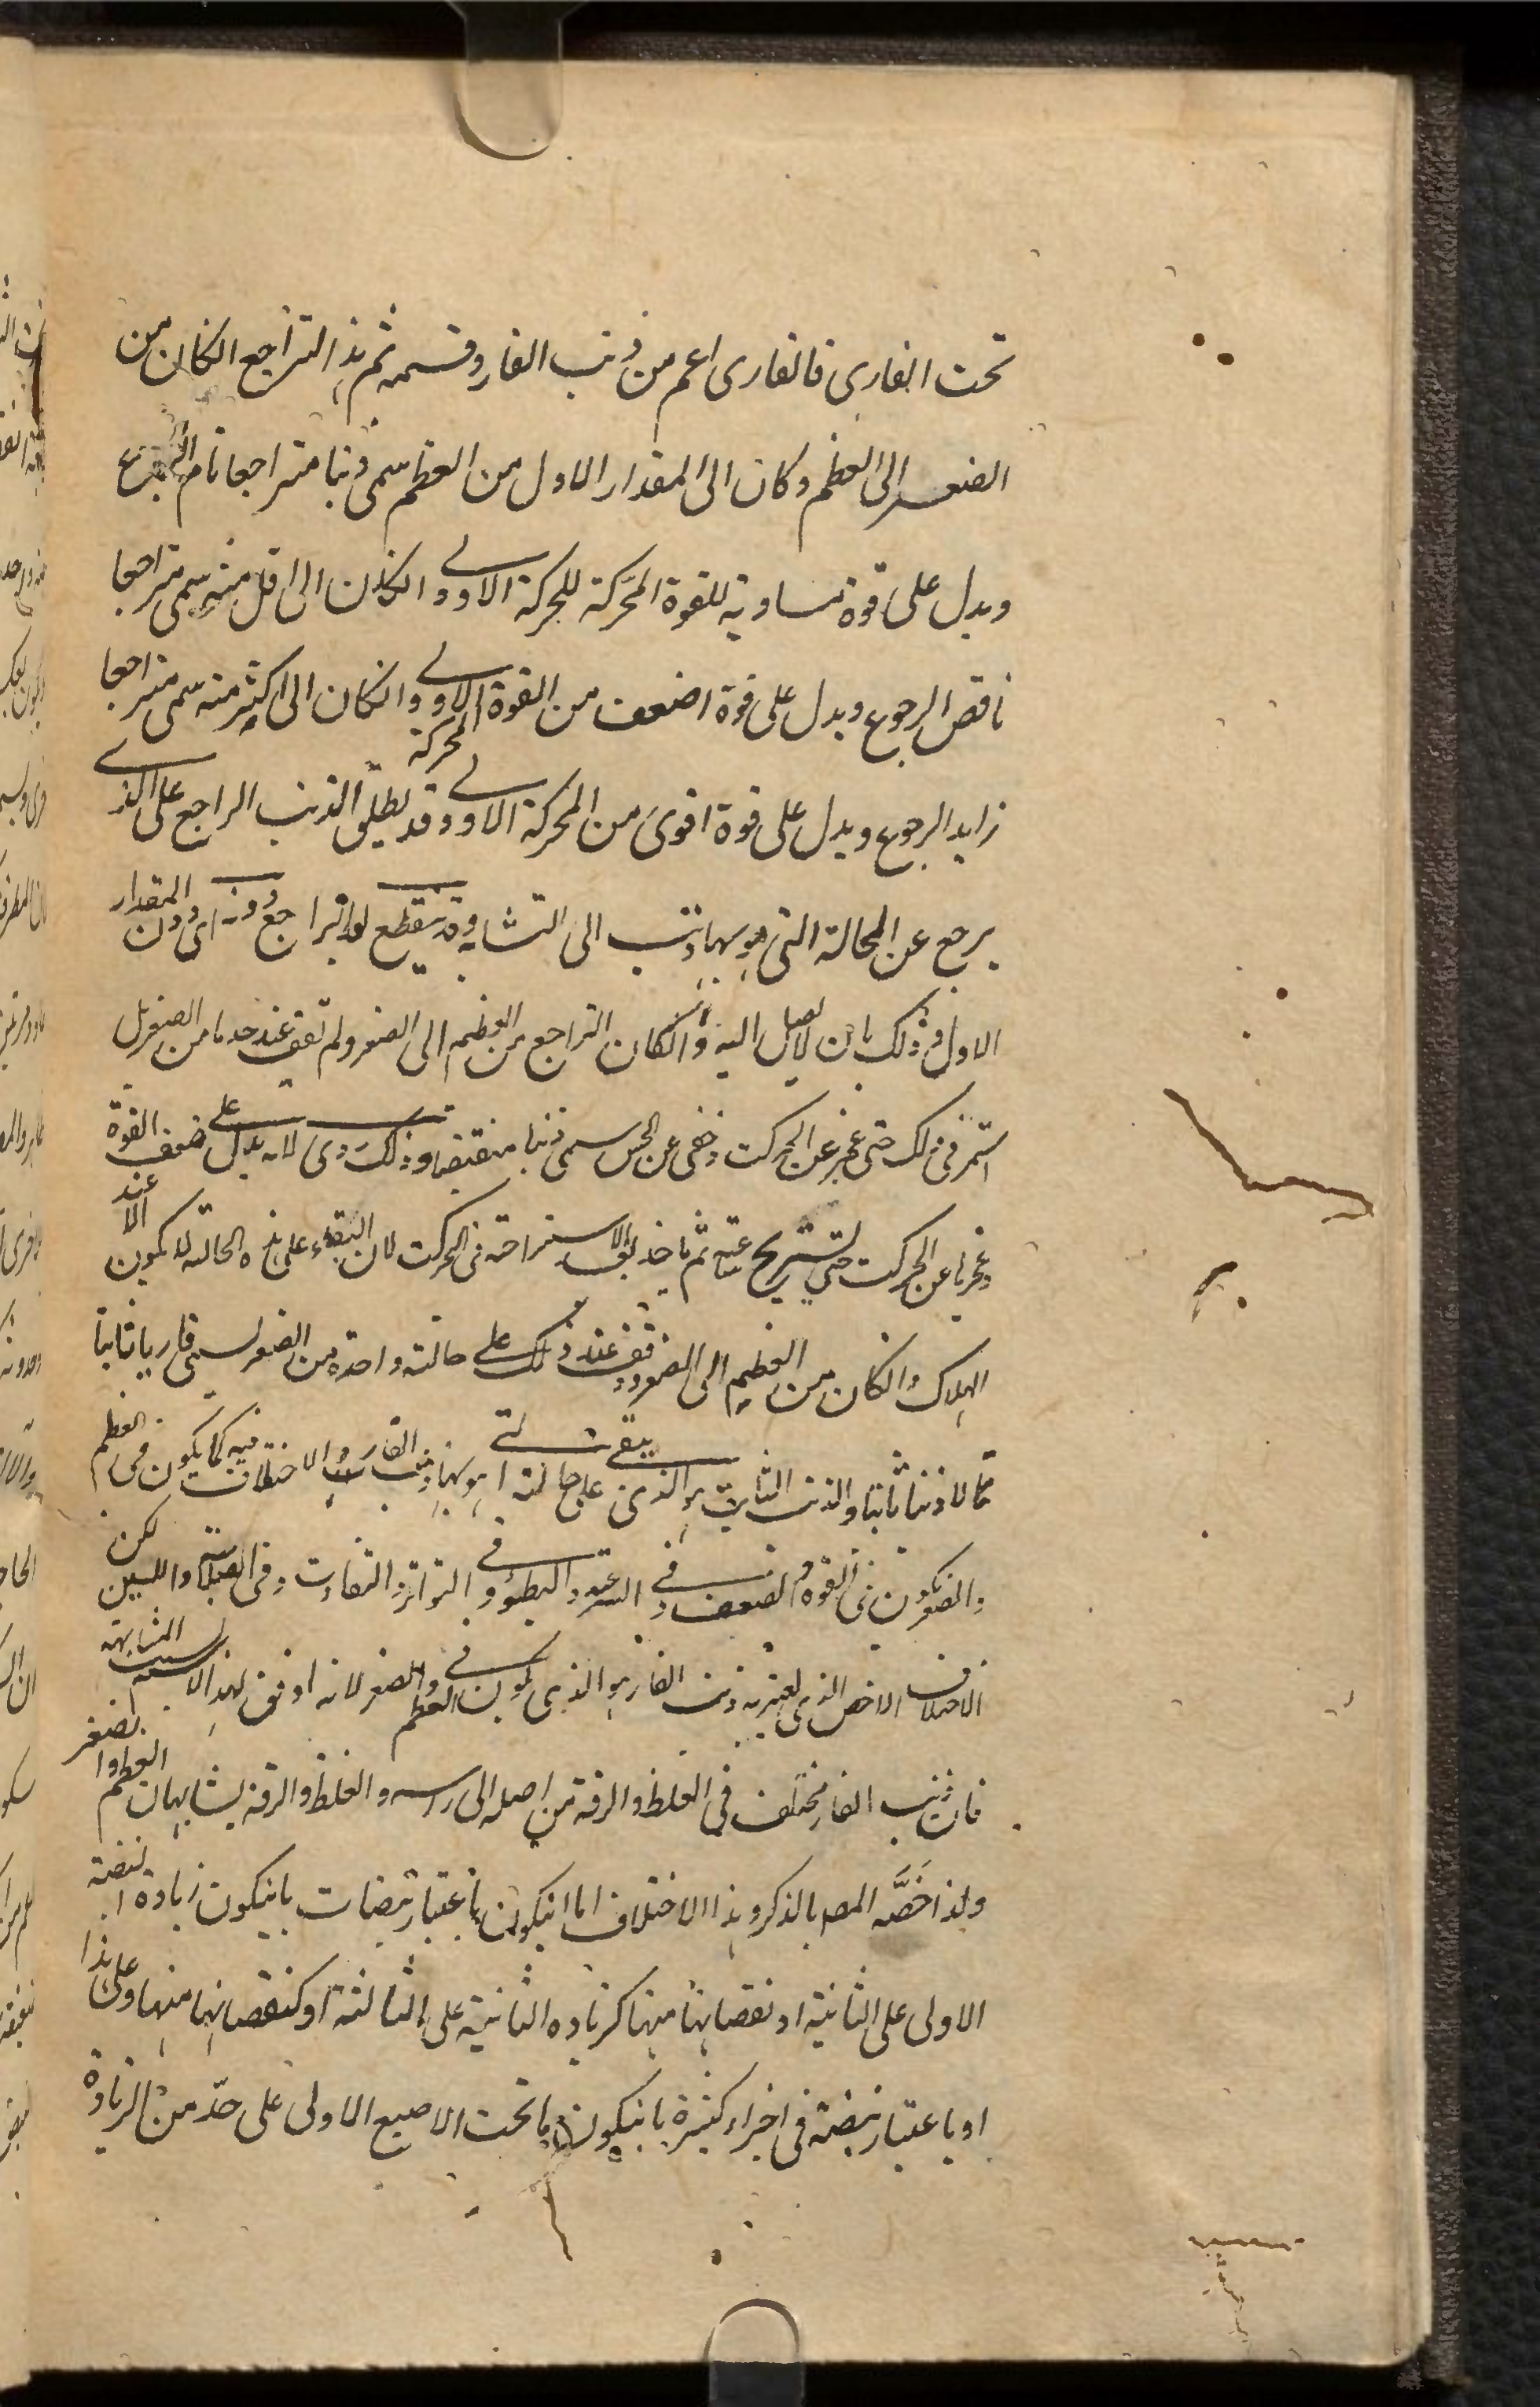 تحت الفارى فالفارى اعم من ذنب الفار وقسمه ثم هذا التراجع الكان من
الصغر الى العظم وكان الى المقدار الاول من العظم سمى ذنبا متراجعا تام الرجوع
ويدل على قوة مساوية للقوة المحركة للحركة الاولى والكان الى اقل منه سمى متراجعا
ناقص الرجوع ويدل على قوة اضعف من القوة المحركة الاولى والكان الى اكثر منه سمى متراجعا
زايد الرجوع ويدل على قوة اقوى من المحركة الاولى وقد يطلق الذنب الراجع على الذى
يرجع عن الحالة التى هو بها ذنب الى التشابه وقد ينقطع التراجع دونه اى دون المقدار
الاول وذلك بان لا يصل اليه والكان التراجع من العظم الى الصغر ولم تقف عند حد ما من الصغر بل
استمر فى ذلك حتى عجز عن الحركت وخفى عن الحس سمى ذنبا منقضيا وذلك ردى لانه يدل على ضعف القوة
وعجزها عن الحركت حتى تستريح عنه ثم ياخذ بعد الاستراحة فى الحركت لان البقاء على هذه الحالة لا يكون الا عند
الهلاك والكان من العظم الى الصغر ووقف عند ذلك على حالته واحدة من الصغر لسمى فاريا ثابتا
كما لا ذنبا ثابتا والذنب الثابت هو الذى يبقى على حالته التى هو بها ذنب الفار والاختلاف فيه كما يكون فى العظم
والصغر يكون فى القوة والضعف وفى السرعة والبطؤ وفى التواتر والتفاوت وفى الصلابة واللين لكن
الاختلاف الاخص الذى يعتبر به ذنب الفار هو الذى يكون فى العظم والصغر لانه اوفق لهذا الاسم بسبب المشابهة
فان ذنب الفار مختلف فى الغلظ والرقة من اصله الى راسه والغلظ والرقة يشابهان العظم والصغر
ولهذا خصه المصـ بالذكر وهذا الاختلاف اما ان يكون باعتبار نبضات بان يكون زيادة النبضة
الاولى على الثانية او نقصانها منها كزيادة الثانية على الثالثة او كنقصانها منها وعلى هذا
او باعتبار نبضة فى اجزاء كثيرة بان يكون ما تحت الاصبع الاولى على حد من الزيادة